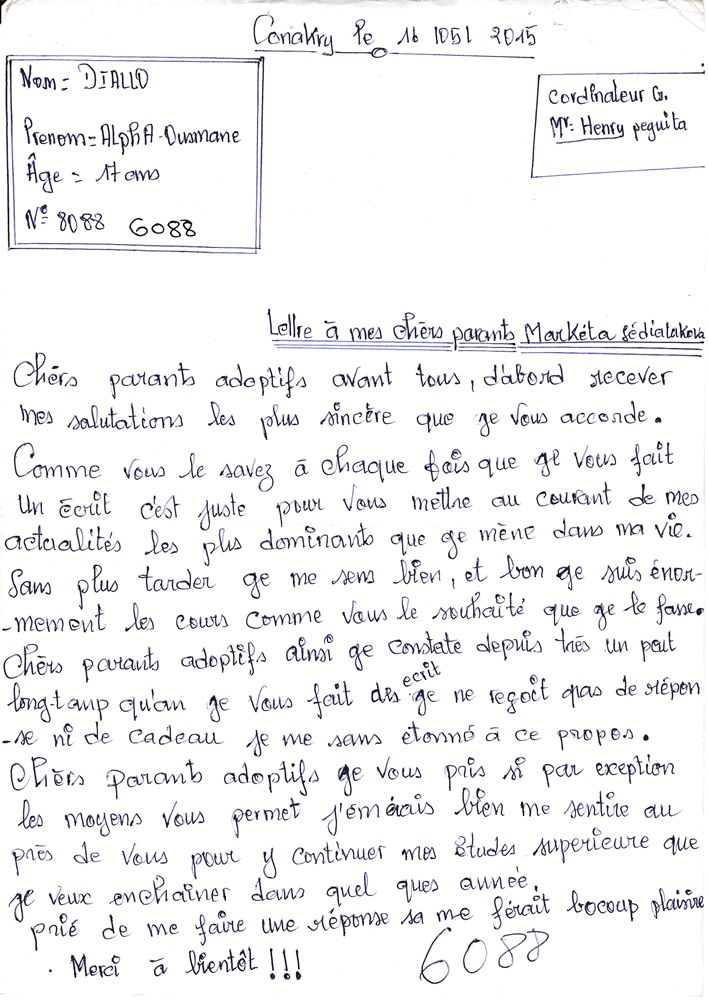 Conakry le 16 1051 2015
Nom = DIALLO
Prenom = AlphA-Ousmane
Âge = 17 ans
N° 8088 6088
Cordinateur G.
Mr: Henry peguita
Lettre à mes chèrs parants Markéta Sédialakova
Chèrs parants adoptifs avant tous, d'abord recever
mes salutations les plus sincère que ge vous accorde.
Comme vous le savez à chaque fois que ge vous fait
un écrit c'est juste pour vous mettre au courant de mes
actualités les plus dominants que ge mène dans ma vie.
Sans plus tarder ge me sens bien, et bon ge suis énor-
-mement les cours comme vous le souhaité que ge le fasse.
Chèrs parants adoptifs ainsi ge constate depuis très un peut
long-tamp qu'an ge vous fait des ecrit ge ne reçoit pas de répon
-se ni de cadeau je me sans étonné à ce propos.
Chèrs parants adoptifs ge vous pris si par exception
les moyens vous permet j'émérais bien me sentire au
près de vous pour y continuer mes études superieure que
ge veux enchaîner dans quel ques année.
prié de me faire une réponse sa me férait bocoup plaisire
. Merci à bientôt !!!
6088